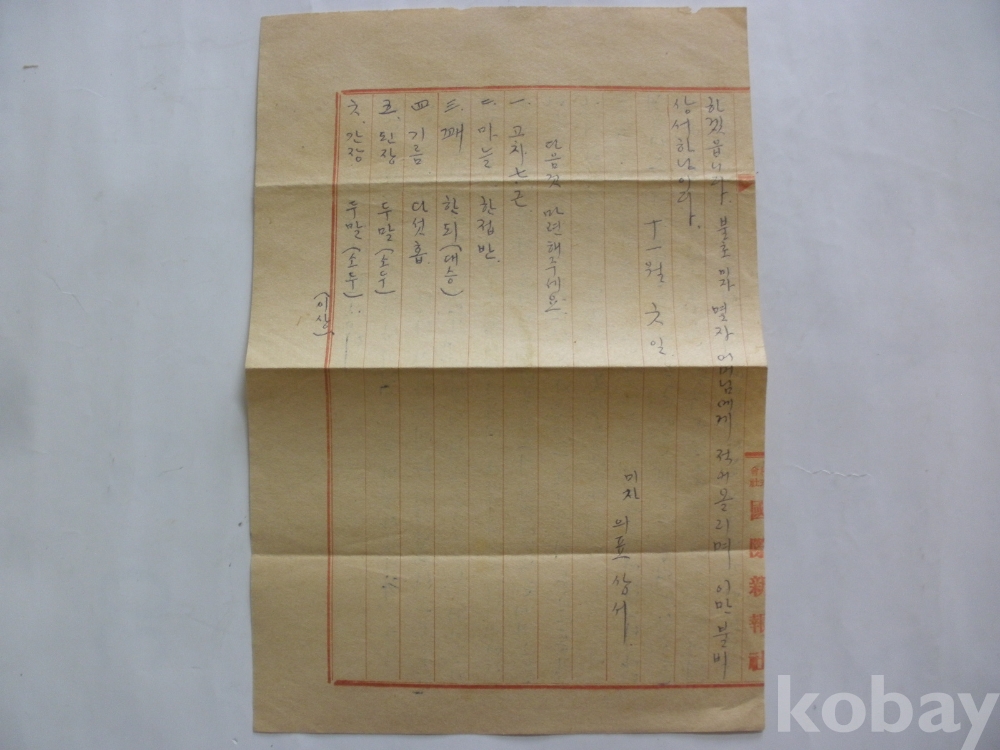 하겠읍니다. 불효 미자 별자 어머님에게 적어 올리며 이만 불비
상서하나이다.
十一월 六일
미자 의표 상서
다음것 마련해주세요.
一. 고차 七.근
二. 마늘 한접반.
三. 깨 한되(대승)
四 기름 다섯홉.
五. 된장 두말(소두)
六. 간장 두말(소두).
(이상)
國際新報社
kobay